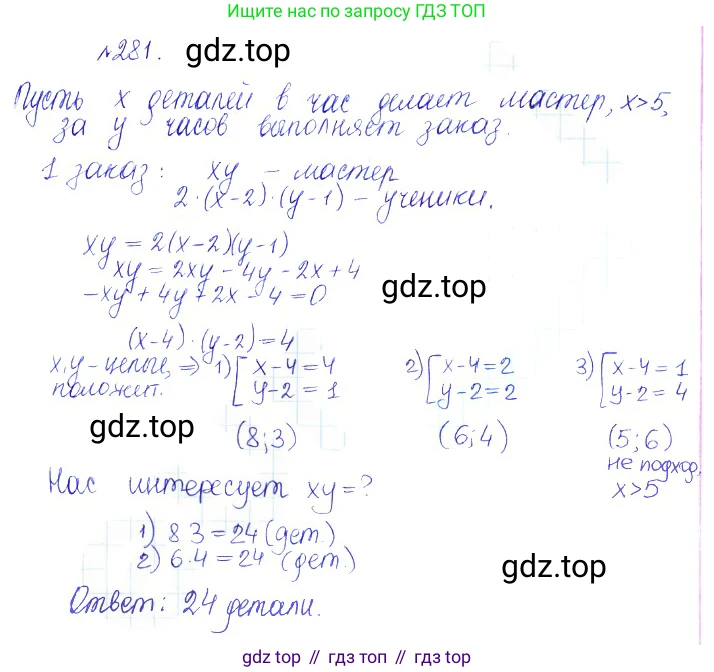 Ищите нас по запросу GDZ.TOP
№281.
gdz.top
Пусть x деталей в час делает мастер, x>5,
за y часов выполняет заказ.
gdz.top
1 заказ: xy - мастер
2·(x-2)·(y-1) - ученики.
xy = 2(x-2)(y-1)
xy = 2xy - 4y - 2x + 4
-xy + 4y + 2x - 4 = 0
gdz.top
(x-4)·(y-2)=4
x,y - целые, => 1) [x-4=4 2) [x-4=2 3) [x-4=1
положит. y-2=1 y-2=2 y-2=4
gdz.top
(8;3) (6;4) (5;6)
не подход,
x>5
Нас интересует xy=?
1) 8 3=24 (дет.)
2) 6·4=24 (дет.)
gdz.top
Ответ: 24 детали.
gdz top // гдз топ // гдз.top